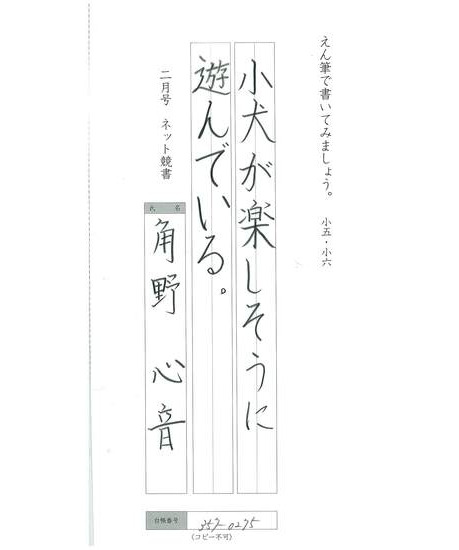 えん筆で書いてみましょう。 小五・小六
小犬が楽しそうに
遊んでいる。
二月号 ネット競書
氏 名
角野 心音
台帳番号
357-0275
(コピー不可)